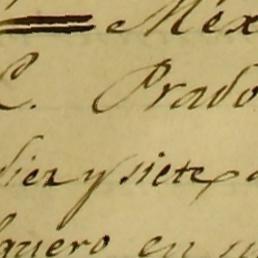 Méx
C. Prado
diez y siete
guero en